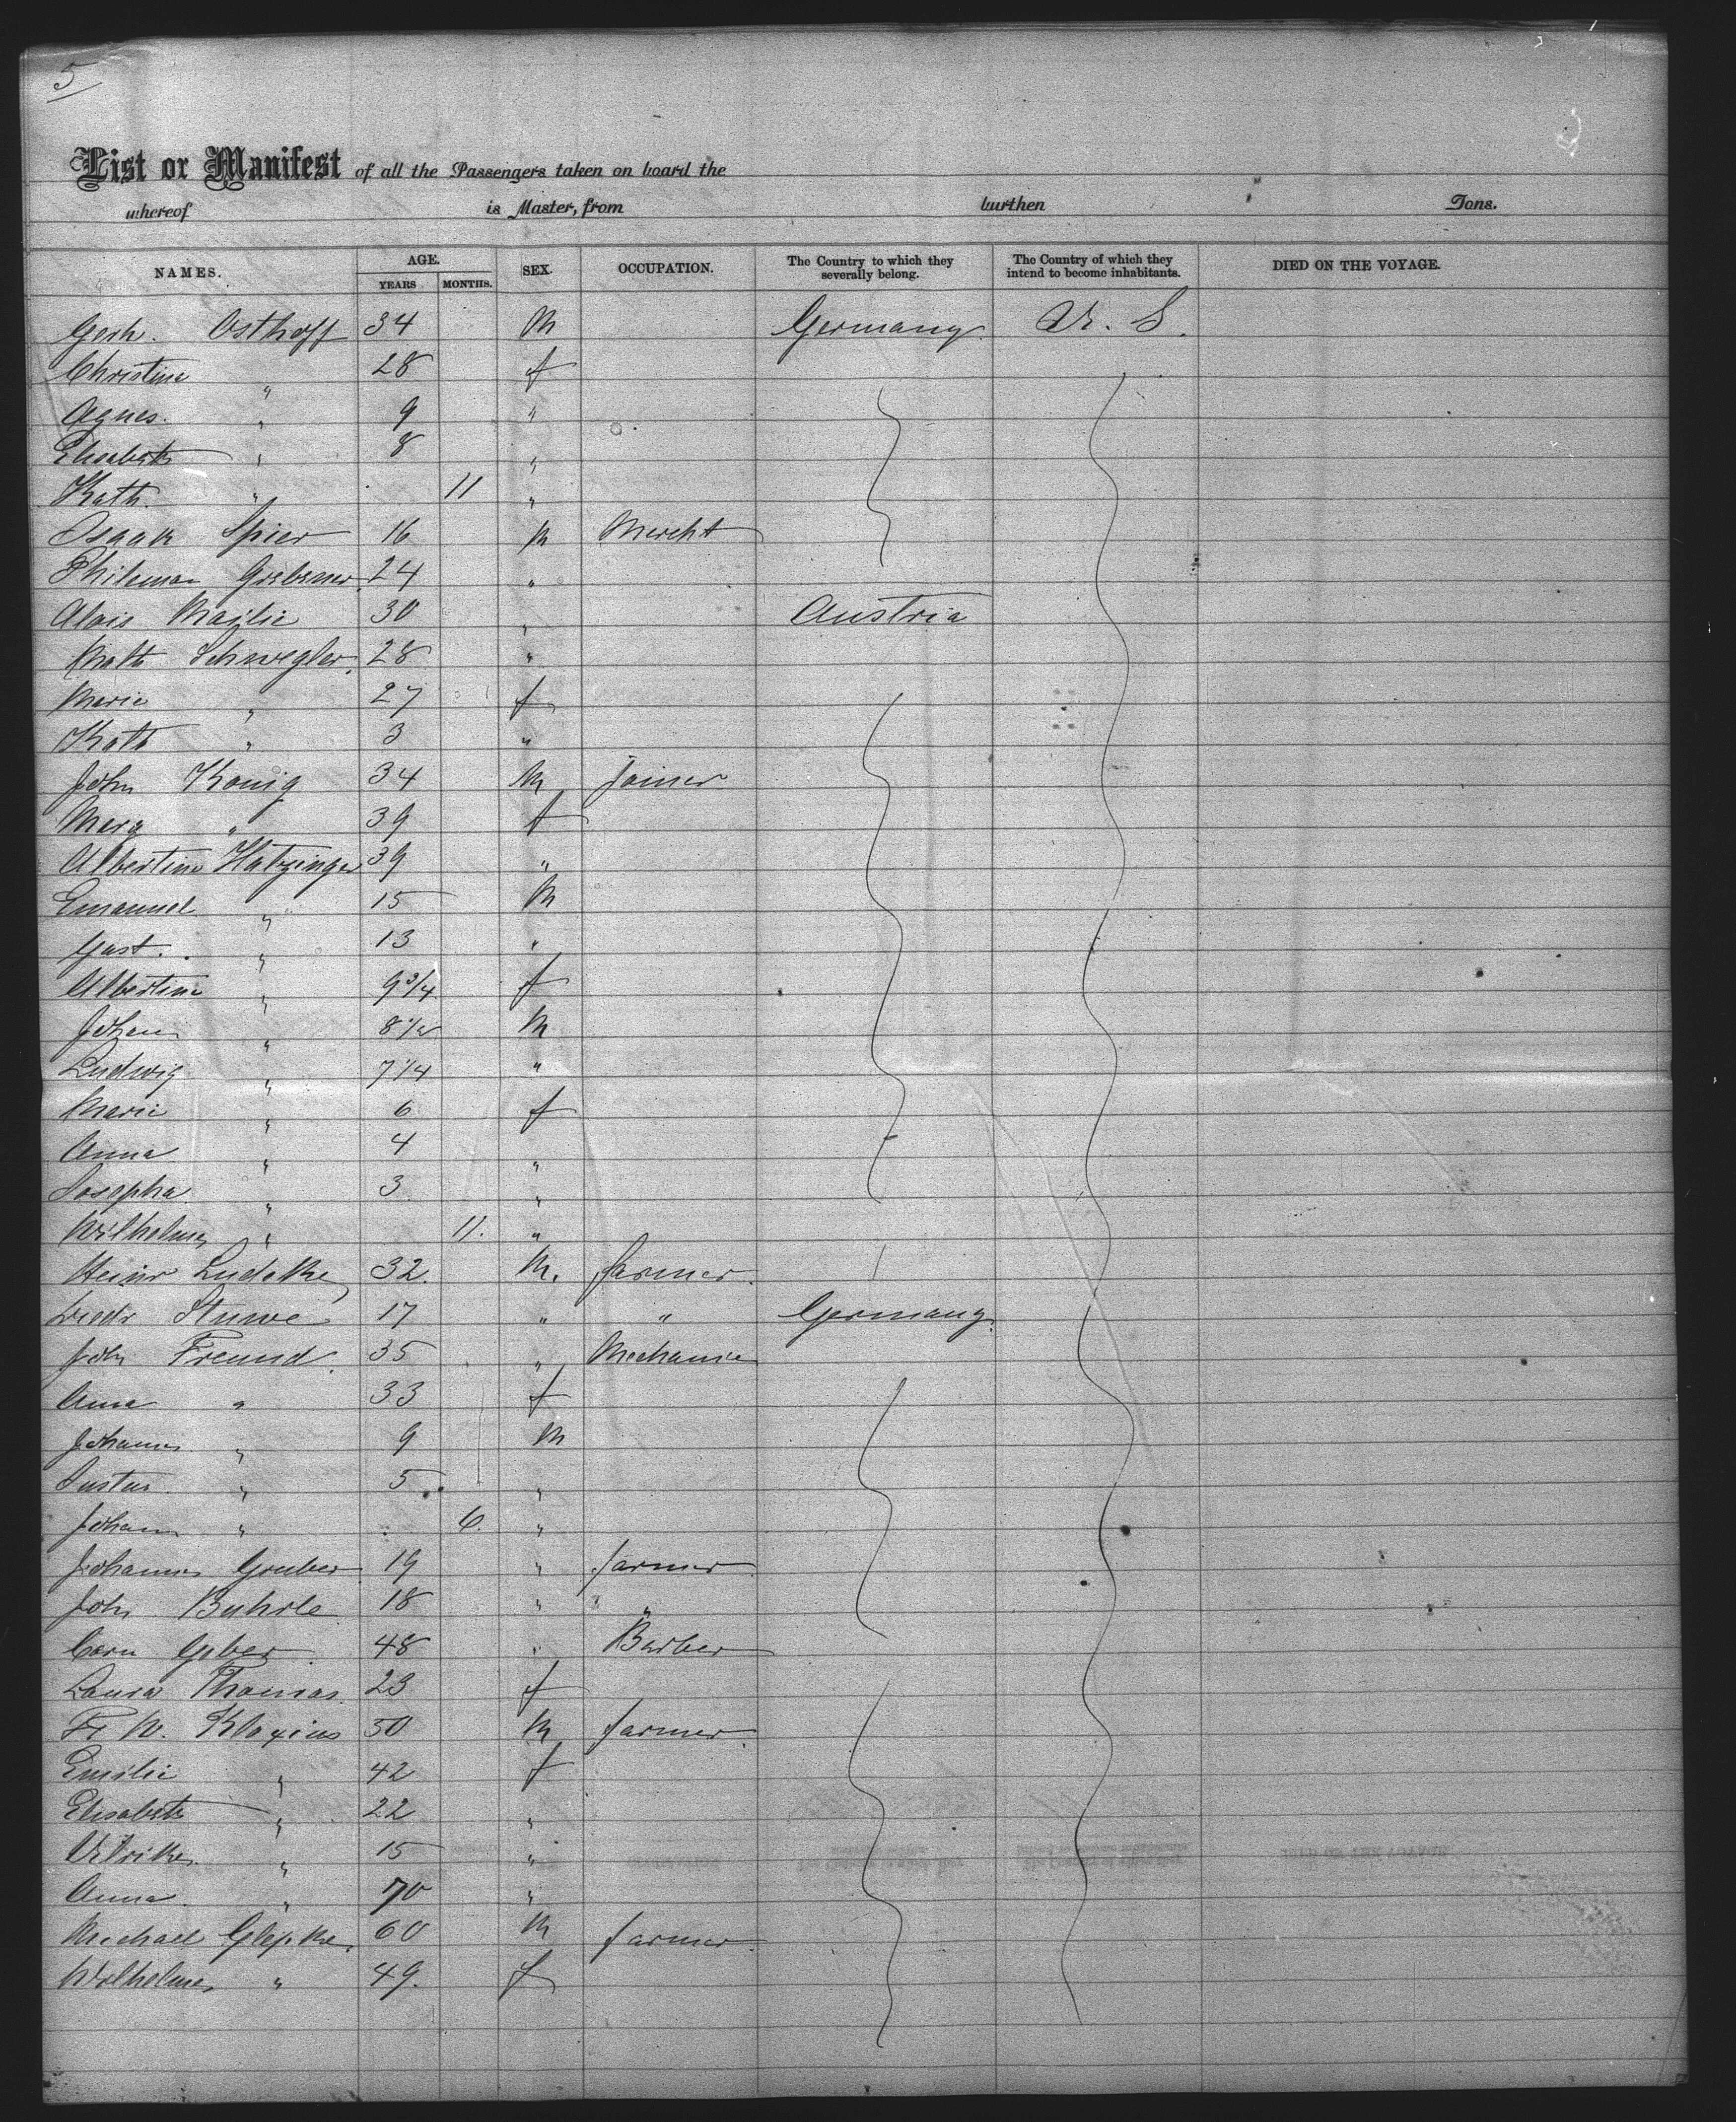 5
List or Manifest of all the Passengers taken on board the
whereof is Master, from burthen Tons.
NAMES. AGE. YEARS MONTHS. SEX. OCCUPATION. The Country to which they severally belong. The Country of which they intend to become inhabitants. DIED ON THE VOYAGE.
Gerh. Osthoff 34 M Germany U. S.
Christine " 28 f
Agnes. " 9 "
Elisabeth " 8 "
Kath. " 11 "
Isaak Spier 16 M Mercht
24 "
Alois 30 " Austria
Math Schwegler. 28 "
Marie " 27 f
Kath " 3 "
John Konig 34 M joiner
Marg " 39 f
Albertine Hatzinger 39 "
Emanuel " 15 M
Gust. " 13 "
Albertine " 9 3/4 f
Johann " 8 1/2 M
Ludwig " 7 1/4 "
Marie " 6 f
Anna " 4 "
Josepha " 3 "
Wilhelmine " 11. "
Heinr Ludeke 32. M. farmer.
Diedr Stuwe 17 " " Germany.
Joh Freund. 35 " Mechanic
Anna " 33 f
Johannes " 9 M
Justus. " 5 "
Johann " 6. "
Johannes Gruber 19 " farmer
Joh Buhrle 18 " "
48 " Barber
Laura Thomas. 23 f
Fr W. 50 M farmer.
Emilie " 42 f
Elisabeth " 22 "
Ulrike. " 15 "
Anna. " 70 "
Michael 60 M farmer.
Wilhelmine " 49. f